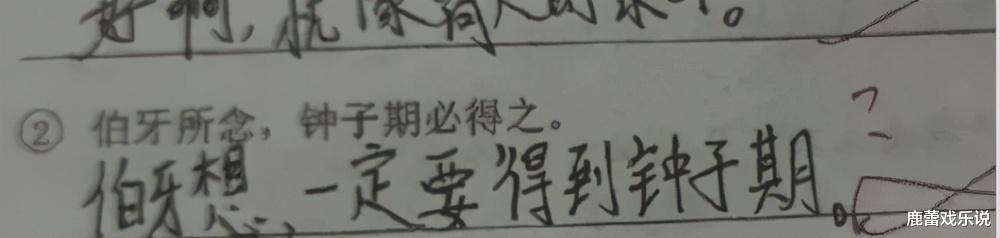 好啊，就像
② 伯牙所念，钟子期必得之。
?
伯牙想，一定要得到钟子期。
鹿蕾戏乐说